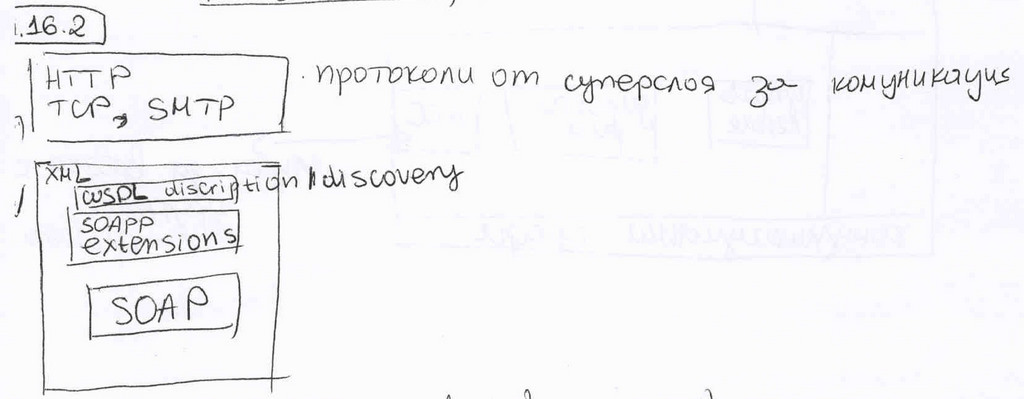 1.16.2
HTTP
TCP, SMTP
· протоколи от суперслоя за комуникация
XML
WSDL discription / discovery
SOAPP
extensions
SOAP